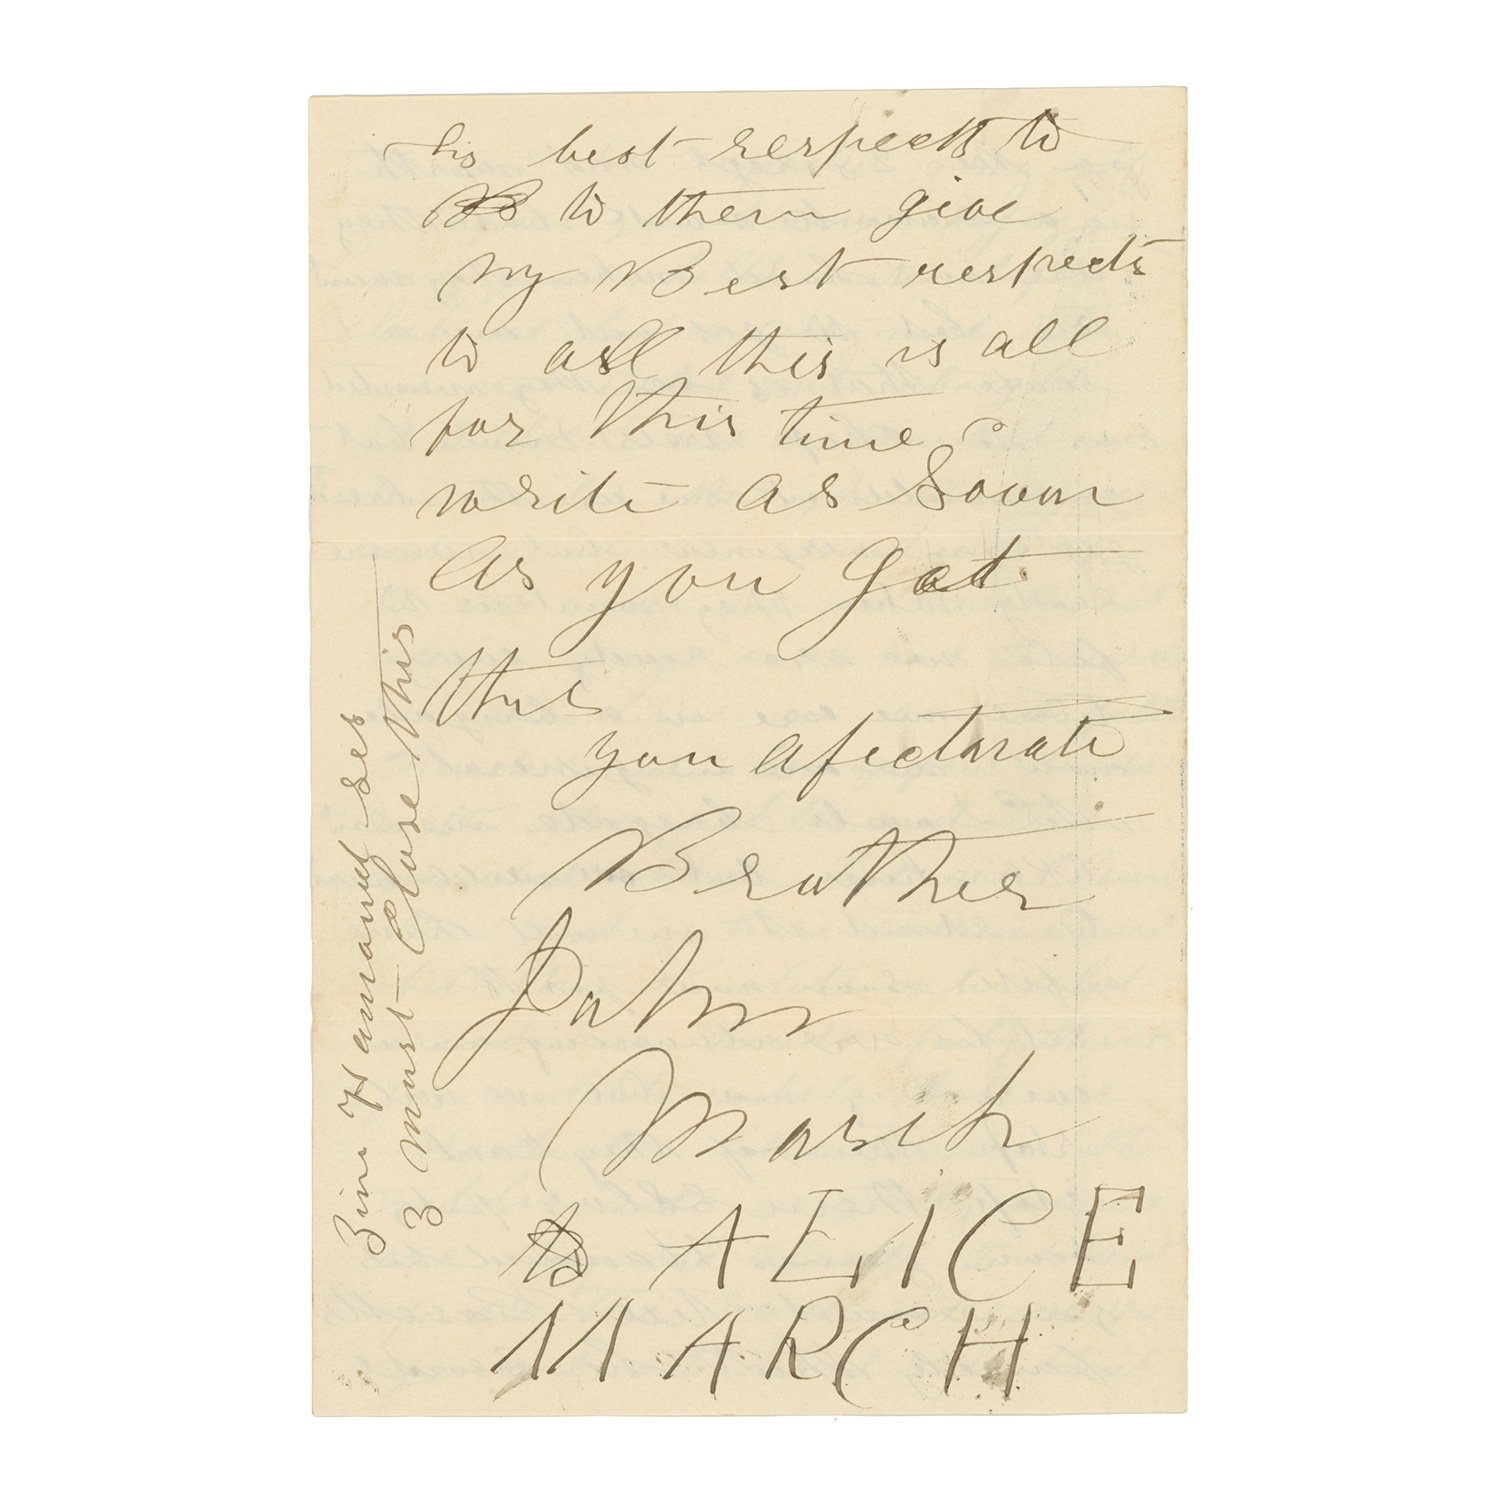 his best respects to
to them give
my Best respects
to all this is all
for this time
write as Soon
as you get
this
your afectionate
Brother
John
March
to ALICE
MARCH
Zim Hammand ses
3 must Close this